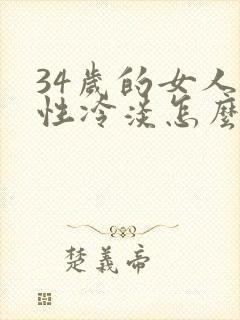 34歲的女人
性冷淡怎麼
楚義帝